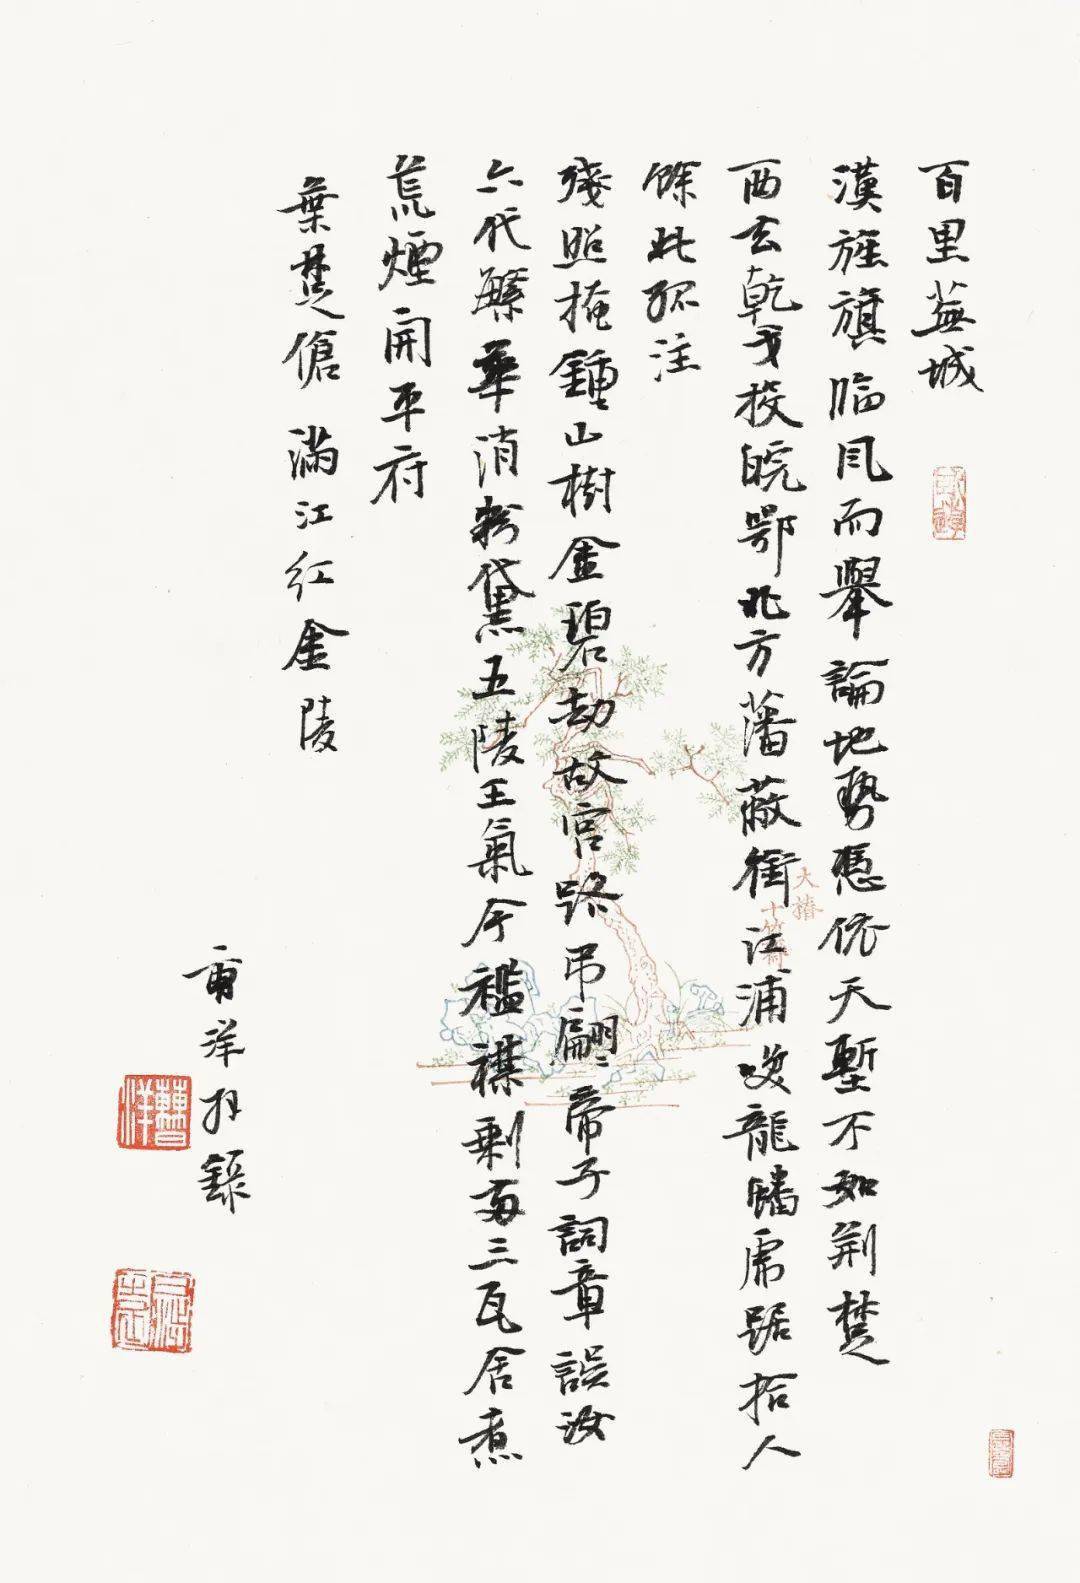 百里蕪城
漢旌旗臨風而舉論地勢憑依天塹不如荆楚
西去乾戈投皖鄂北方藩蔽銜江浦唤龍蟠虎踞拾人
餘此孤注
殘照掩鍾山樹金碧劫故宫路吊翩〻帝子詞章誤汝
六代繁華消粉黛五陵王氣今襤褸剩两三瓦舍煮
荒煙開平府
葉楚傖 滿江紅 金陵
曹洋錄
大椿
十竹齋
曹洋